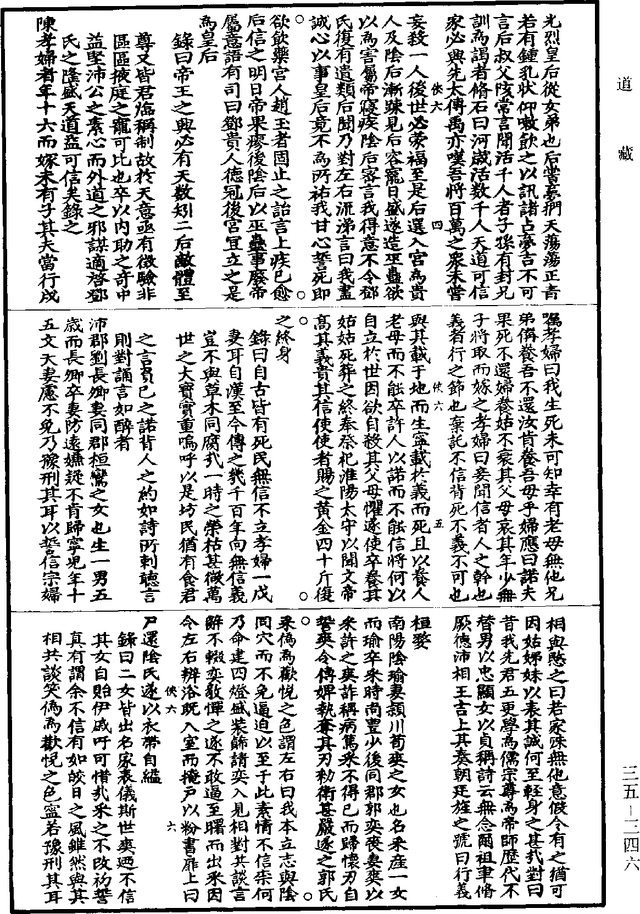 道藏
光烈皇后從女弟也后嘗夢捫天蕩蕩正青
若有鍾乳狀仰嗽飲之以訊諸占夢吉不可
言后叔父陔常言聞活千人者子孫有封兄
訓為謁者脩石臼河歲活數千人天道可信
家必興先太傅禹亦嘆吾將百萬之眾未嘗
妄殺一人後世必蒙福至是后選入宮為貴
人及陰后漸踈見后容寵日盛遂造巫蠱欲
以為害屬帝寢疾陰后密言我得意不令鄧
氏復有遺類后聞乃對左右流涕言曰我盡
誠心以事皇后竟不為所祐我甘心誓死即
欲飲藥宮人趙玉者固止之詒言上疾已愈
后信之明日帝果瘳後陰后以巫蠱事廢帝
屬意語有司曰鄧貴人德冠後宮宜立之是
為皇后
錄曰帝王之興必有天數矧二后敵體至
尊又皆君臨稱制故於天意亟有徵驗非
區區掖庭之寵可比也卒以內助之奇中
益堅沛公之素心而外道之邪謀適啓鄧
氏之隆盛天道益可信矣錄之
陳孝婦者年十六而嫁未有子其夫當行戍
俠六 四
囑孝婦曰我生死未可知幸有老母無他兄
弟備養吾不還汝肯養吾母乎婦應曰諾夫
果死不還婦養姑不衰其父母哀其年少無
子將取而嫁之孝婦曰妾聞信者人之幹也
義者行之節也棄託不信背死不義不可也
與其載于地而生寧載於義而死且以養人
老母而不能卒許人以諾而不能信將何以
自立於世因欲自殺其父母懼遂使卒養其
姑姑死葬之終奉祭祀淮陽太守以聞文帝
高其義貴其信使使者賜之黃金四十斤復
之終身
錄曰自古皆有死民無信不立孝婦一戍
妻耳自漢至今傳之幾千百年向無信義
豈不與草木同腐哉一時之榮枯甚微萬
世之大寶實重嗚呼以是坊民猶有食君
之言負已之諾背人之約如詩所刺聽言
則對誦言如醉者
沛郡劉長卿妻同郡桓鸞之女也生一男五
歲而長卿卒妻防遠嫌疑不肯歸寧兒年十
五夭妻慮不免乃豫刑其耳以誓信宗婦
俠六 五
相與愍之曰若家殊無他意假令有之猶可
因姑姊妹以表其誠何至輕身之甚哉對曰
昔我先君五更學為儒宗尊為帝師歷代不
替男以忠顯女以貞稱詩云無念爾祖聿脩
厥德沛相王吉上其奏朝廷旌之號曰行義
桓嫠
南陽陰瑜妻潁川荀爽之女也名采産一女
而瑜卒采時尚豐少後同郡郭奕喪妻爽以
采許之爽詐稱病篤采不得已而歸懷刃自
誓爽令傅婢執奪其刃勒衛甚嚴遂之郭氏
采偽為歡悅之色謂左右曰我本立志與陰
同穴而不免逼迫以至于此素情不信柰何
乃命建四燈盛裝飾請奕入見相對共談言
辭不輟奕敬憚之遂不敢逼至曙而出采因
令左右辨浴既入室而掩戶以粉書扉上曰
尸還陰氏遂以衣帶自縊
錄曰二女皆出名家表儀斯世爽迺不信
其女自貽伊戚吁可惜哉采之不改礿誓
真有謂余不信有如皎日之風雖然與其
相共談笑偽為歡悅之色寧若豫刑其耳
俠六 六
三五—三四六